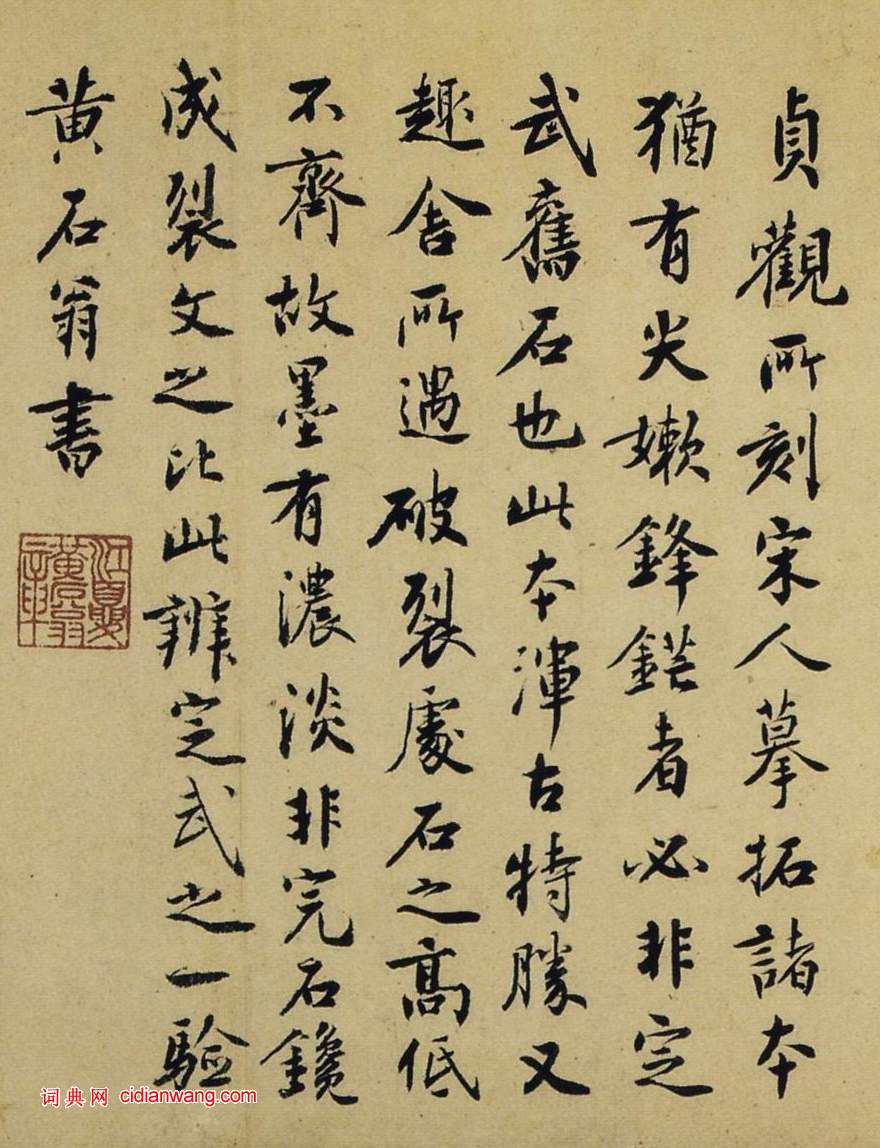 貞觀所刻宋人摹拓諸本
猶有尖嫩鋒鋩者必非定
武舊石也此本渾古特勝又
趣舍所遇破裂處石之高低
不齊故墨有濃淡非完石鑱
成裂文之比此辨定武之一驗
黄石翁書
词典网 cidianwang.com